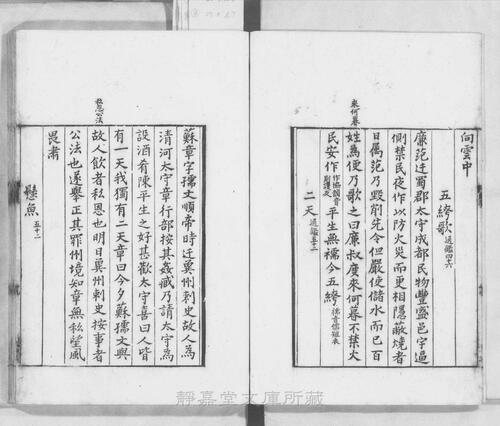 向雲中
五絝歌 通鑑四十六
來何暮
廉范迁蜀郡太守成都民物豐盛邑宇逼
側禁民夜作以防火災而更相隱蔽燒者
日属范乃毀削先令但嚴使儲水而已百
姓為便乃歌之曰廉叔度來何暮不禁火
民安作
平生無襦今五絝
二天 通鑑五十二
懸魚 五十二
蘇章字孺文順帝時迁冀州刺史故人為
清河太守章行部按其姦臧乃請太守為
設酒肴陳平生之好甚歡太守喜曰人皆
有一天我獨有二天章曰今夕蘇孺文與
故人飲者私恩也明日冀州刺史按事者
公法也遂舉正其罪州境知章無私望風
畏肅
私恩公法
靜嘉堂文庫所藏